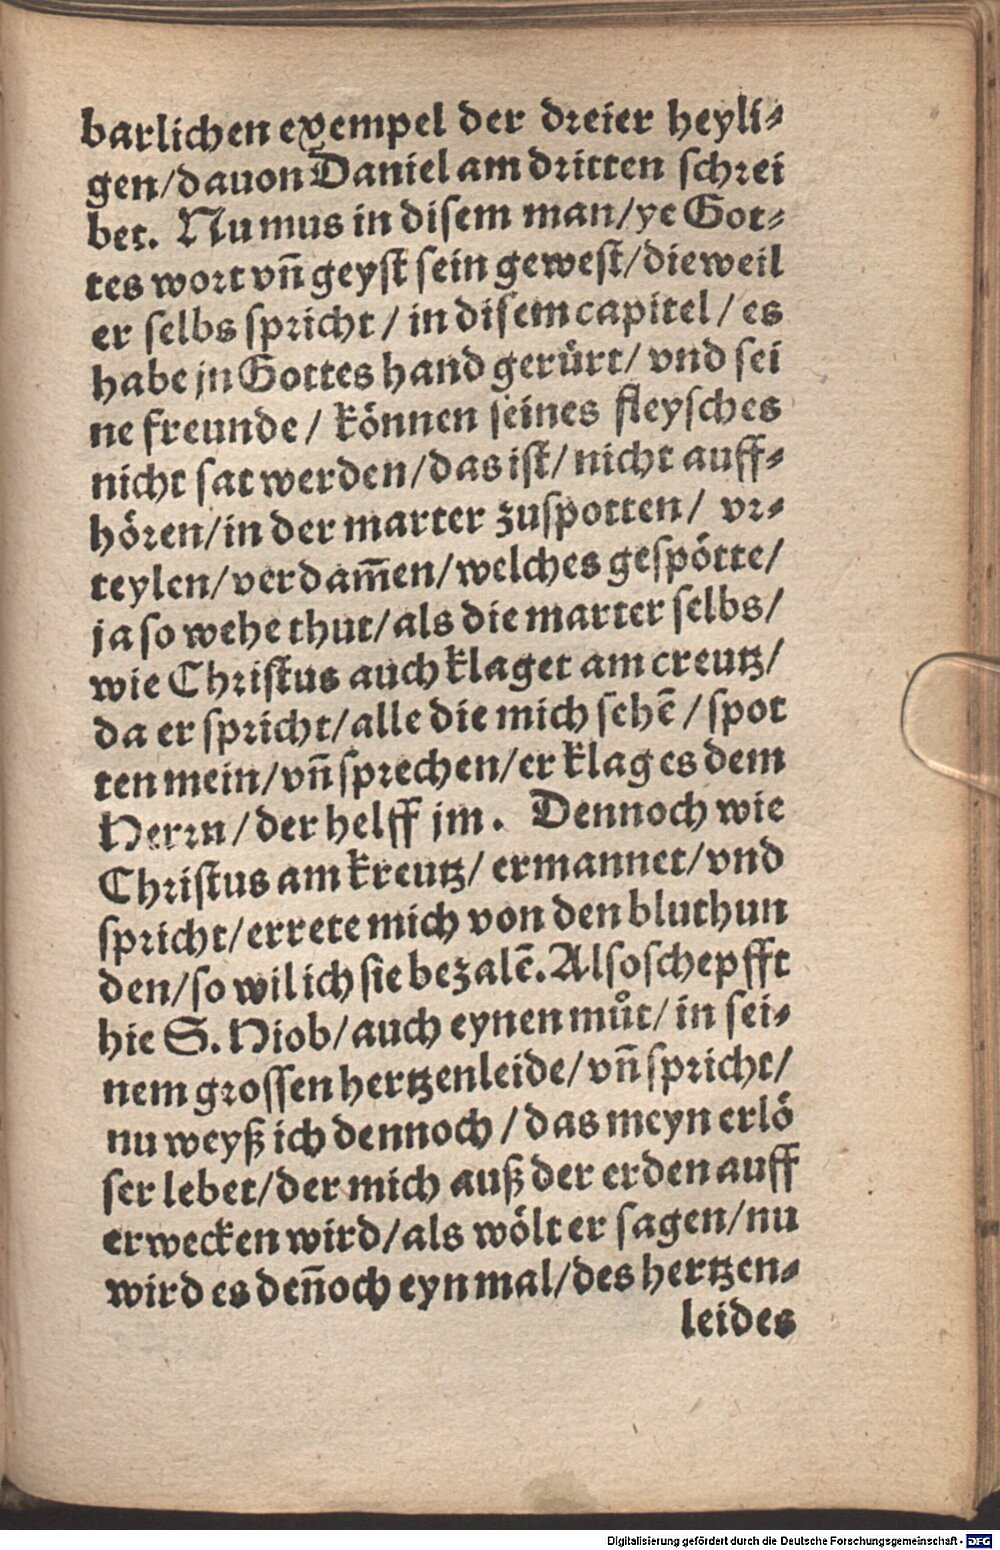 barlichen exempel der dreier heyli⸗
gen/dauon Daniel am dritten schrei
bet. Nu mus in disem man/ye Got⸗
tes wort vn̄ geyst sein gewest/dieweil
er selbs spricht / in disem capitel / es
habe jn Gottes hand gerürt/ vnd sei
ne freunde / können seines fleysches
nicht sat werden/das ist/ nicht auff⸗
hören/in der marter zuspotten/ vr⸗
teylen/verdam̄en/welches gespötte/
ja so wehe thut/als die marter selbs/
wie Christus auch klaget am creutz/
da er spricht/alle die mich sehē / spot
ten mein/vn̄ sprechen/er klag es dem
Herrn/der helff jm. Dennoch wie
Christus am kreutz/ ermannet/vnd
spricht/errete mich von den bluthun
den/so wil ich sie bezalē. Also schepfft
hie S. Hiob/auch eynen můt/ in sei⸗
nem grossen hertzenleide/vn̄ spricht/
nu weyß ich dennoch / das meyn erlö
ser lebet/der mich auß der erden auff
erwecken wird/als wölt er sagen/nu
wird es den̄och eyn mal/des hertzen⸗
leides
Digitalisierung gefördert durch die Deutsche Forschungsgemeinschaft - DFG